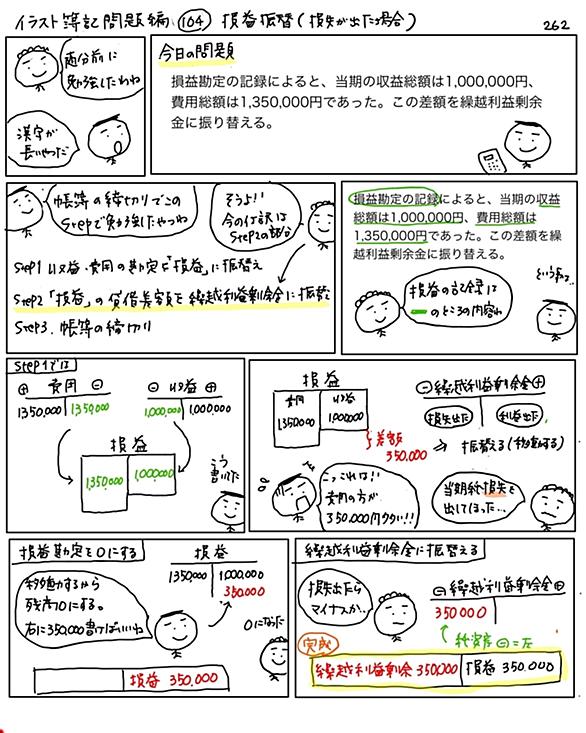 イラスト簿記問題編 104 損益振替(損失が出た場合)
262
両分前に
勉強したわね
漢字が
長いやつだ
今日の問題
損益勘定の記録によると、当期の収益総額は1,000,000円、
費用総額は1,350,000円であった。この差額を繰越利益剰余
金に振り替える。
帳簿の締切りでこの
Stepで勉強したやつね
そうよ!!
今の仕訳は
Step2の部分
Step1 収益・費用の勘定を「損益」に振替え
Step2「損益」の貸借差額を繰越利益剰余金に振替え
Step3. 帳簿の締切り
損益勘定の記録によると、当期の収益
総額は1,000,000円、費用総額は
1,350,000円であった。この差額を繰
越利益剰余金に振り替える。
損益の記録は
のところの内容ね
という事で…
Step1では
⊕ 費用 ⊖
1350,000 1350,000
⊖ 収益 ⊕
1,000,000 1,000,000
損益
1350,000 1,000,000
こう
書いた
損益
費用 収益
1350,000 1,000,000
差額
350,000
⊖繰越利益剰余金⊕
損失出た 利益出た
⇒ 振替える(移動する)
こっこれは!!
費用の方が
350,000円多い!!
当期純損失を
出してしまった…
損益勘定を0にする
損益
1350,000 1,000,000
350,000
移動するから
残高0にする。
右に350,000書けばいいね
0になった
損益 350,000
繰越利益剰余金に振替える
損失出たら
マイナスか…
⊖繰越利益剰余金⊕
350000
純資産⊖=左
完成
繰越利益剰余 350,000 損益 350,000